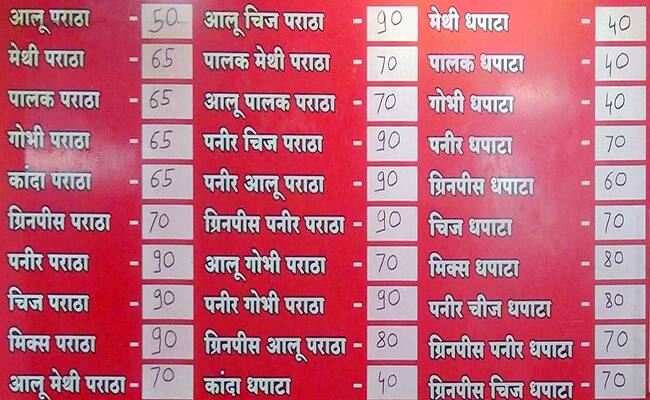 आलू पराठा - 50
मेथी पराठा - 65
पालक पराठा - 65
गोभी पराठा - 65
कांदा पराठा - 65
ग्रिनपीस पराठा - 70
पनीर पराठा - 90
चिज पराठा - 90
मिक्स पराठा - 90
आलू मेथी पराठा - 70
आलू चिज पराठा - 90
पालक मेथी पराठा - 70
आलू पालक पराठा - 70
पनीर चिज पराठा - 90
पनीर आलू पराठा - 90
ग्रिनपीस पनीर पराठा - 90
आलू गोभी पराठा - 70
पनीर गोभी पराठा - 90
ग्रिनपीस आलू पराठा - 80
कांदा धपाटा - 40
मेथी धपाटा - 40
पालक धपाटा - 40
गोभी धपाटा - 40
पनीर धपाटा - 70
ग्रिनपीस धपाटा - 60
चिज धपाटा - 70
मिक्स धपाटा - 80
पनीर चीज धपाटा - 80
ग्रिनपीस पनीर धपाटा - 70
ग्रिनपीस चिज धपाटा - 70